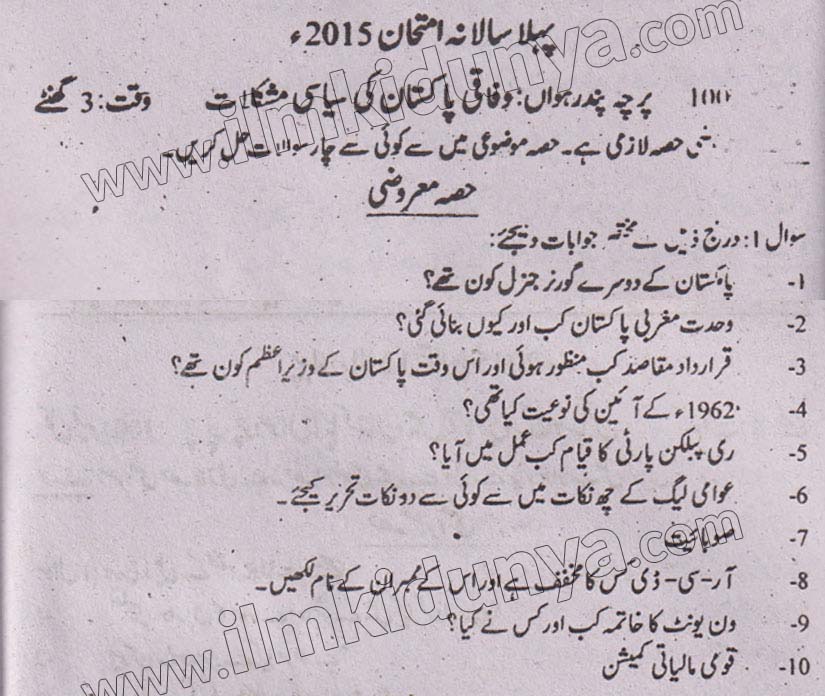 پہلا سالانہ امتحان 2015ء
100 پرچہ پندرہواں: وفاقی پاکستان کی سیاسی مشکلات وقت: 3 گھنٹے
حصہ لازمی ہے۔ حصہ موضوعی میں سے کوئی سے چار سوالات حل کریں۔
حصہ معروضی
سوال 1: درج ذیل کے مختصر جوابات دیجئے:
1- پاکستان کے دوسرے گورنر جنرل کون تھے؟
2- وحدت مغربی پاکستان کب اور کیوں بنائی گئی؟
3- قرارداد مقاصد کب منظور ہوئی اور اس وقت پاکستان کے وزیراعظم کون تھے؟
4- 1962ء کے آئین کی نوعیت کیا تھی؟
5- ری پبلکن پارٹی کا قیام کب عمل میں آیا؟
6- عوامی لیگ کے چھ نکات میں سے کوئی سے دو نکات تحریر کیجئے۔
7- صوبائیت
8- آر-سی-ڈی کس کا مخفف ہے اور اس کے ممبران کے نام لکھیں۔
9- ون یونٹ کا خاتمہ کب اور کس نے کیا؟
10- قومی مالیاتی کمیشن
www.ilmkidunya.com
www.ilmkidunya.com